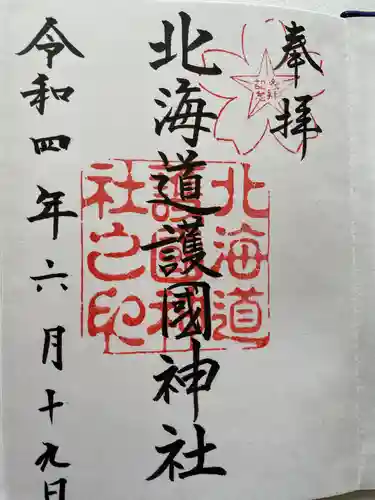 奉拝
北海道護國神社
令和四年六月十九日
北海道
護國神
社之印